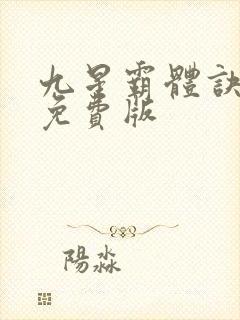 九星霸體訣
免費版
陽淼